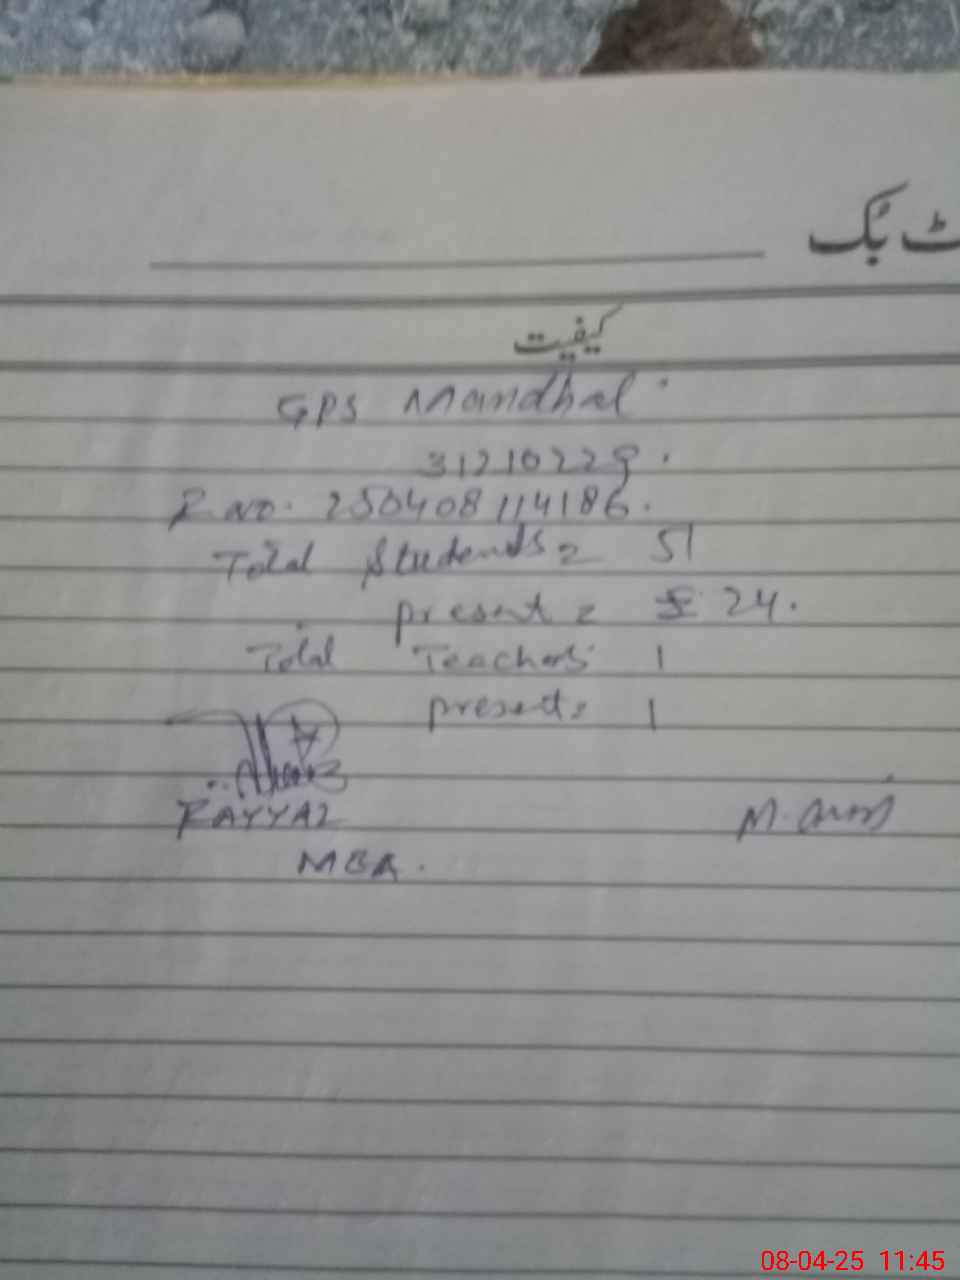 بُک
کیفیت
GPS Mandhal
31210229.
R.NO. 250408114186.
Total Students = 51
present = 24.
Total Teachers 1
present = 1
FAYYAZ
MEA.
08-04-25 11:45